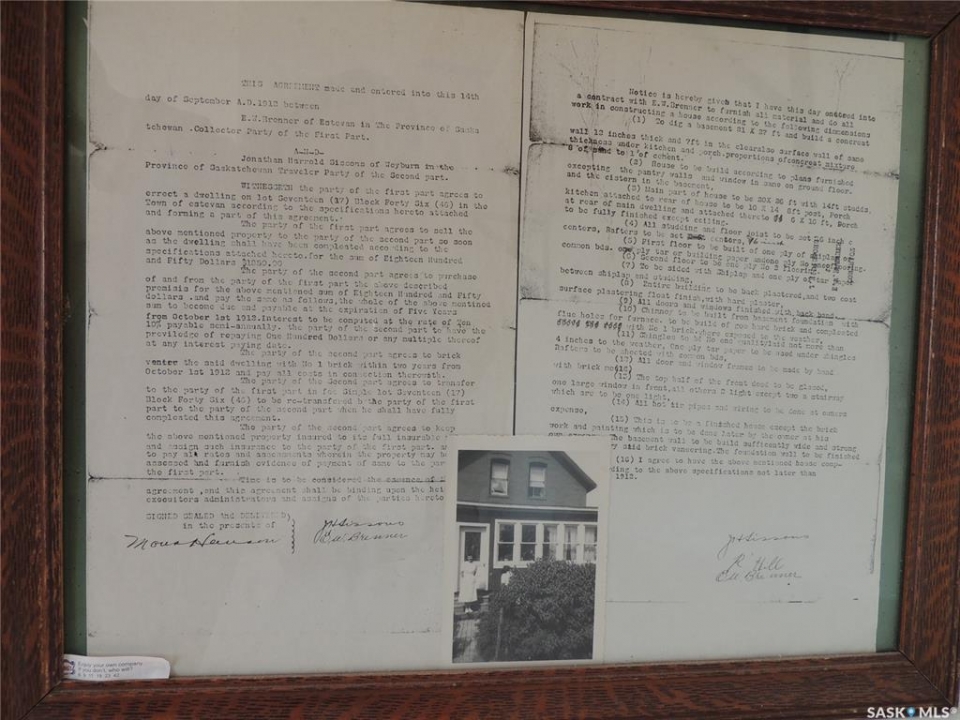 THIS AGREEMENT made and entered into this 14th
day of September A.D.1912 between
E.W.Brenner of Estevan in The Province of Saska
tchewan .Collector Party of the First Part.
A.N.D.
Jonathan Harrold Sissons of Weyburn in the
Province of Saskatchewan Traveler Party of the Second part.
WITNESSETH the party of the first part agrees to
errect a dwelling on lot Seventeen (17) Block Forty Six (46) in the
Town of estevan according to the specifications hereto attached
and forming a part of this agreement.
The party of the first part agrees to sell the
above mentioned property to the party of the second part so soon
as the dwelling shall have been compleated according to the
specifications attached hereto.for the sum of Eighteen Hundred
and Fifty Dollars $1850.00
The party of the second part agrees to purchase
of and from the party of the first part the above described
premiss for the above mentioned sum of Eighteen Hundred and Fifty
dollars .and pay the same as follows,the whole of the above mentined
sum to become due and payable at the expiration of Five Years
from October 1st 1913.Interest to be computed at the rate of Ten
10% payable semi-annually. the party of the second part to have the
priviledge of repaying One Hundred Dollars or any multiple thereof
at any interest paying date.
The party of the second part agrees to brick
veneer the said dwelling with No 1 brick within two years from
October 1st 1912 and pay all costs in connection therewith.
The party of the Second part agrees to transfer
to the party of the first part in fee Simple lot Seventeen (17)
Block Forty Six (46) to be re-transferred by the party of the first
part to the party of the second part when he shall have fully
compleated this agreement.
The party of the second part agrees to keep
the above mentioned property insured to its full insurable
and assign such insurance to the party of the first part.
to pay all rates and assessments wherein the property may be
assessed and furnish evidence of payment of same to the par
the first part.
Time is to be considered the essence of
agreement ,and this agreement shall be binding upon the hei
executors administrators and assigns of the parties hereto
SIGNED SEALED And DELIVERED)
in the presents of
JHSissons
EW Brenner
Notice is hereby given that I have this day entered into
a contract with E.W.Brenner to furnish all material and do all
work in constructing a house according to the following dimensions
(1) To dig a basement 21 X 27 ft and build a concrete
wall 12 inches thick and 7ft in the clear also surface wall of same
thickness under kitchen and porch.proportions of concrete mixture
6 of sand to 1 of cement.
(2) House to be build according to plans furnished
excepting the pantry walls and window in same on ground floor.
and the cistern in the basement,
(3) Main part of house to be 20X 26 ft with 14ft studds,
kitchen attached to rear of house to be 10 X 14 8ft post, Porch
at rear of main dwelling and attached thereto 6 X 10 ft, Porch
to be fully finished except ceiling.
(4) All studding and floor joist to be set 16 inch
centers, Rafters to be set centers,
(5) First floor to be built of one ply of shiplap
common bds. one ply tar or building paper and one ply No
(6) Second floor to be one ply No 2 flooring.
(7) To be sided with Shiplap and one ply of tar paper
between shiplap and studding.
(8) Entire building to be back plastered,and two coat
surface plastering float finish,with hard plaster,
(9) All doors and windows finished with back band.
(10) Chimney to be built from basement foundation with
flue holes for furnace. to be build of good hard brick and compleated
with No 1 brick,where exposed to the weather,
(11) Shingles to be No one quality laid not more than
4 inches to the weather, One ply tar paper to be used under shingles
Rafters to be sheeted with common bds,
(12) All door and window frames to be made by hand
with brick
(13) The top half of the front door to be glazed,
one large window in front,all others 2 light except two a stairway
which are to be one light.
(14) All hot air pipes and wiring to be done at owners
expense,
(15) This is to be a finished house except the brick
work and painting which is to be done later by the owner at his
The basement wall to be build sufficiently wide and strong
said brick veneering.The foundation wall to be finished
(16) I agree to have the above mentioned house comp-
ding to the above specifications not later than
1912.
JHSissons
R Hill
EW Brenner
Enjoy your own company.
If you don't, who will?
SASK MLS®